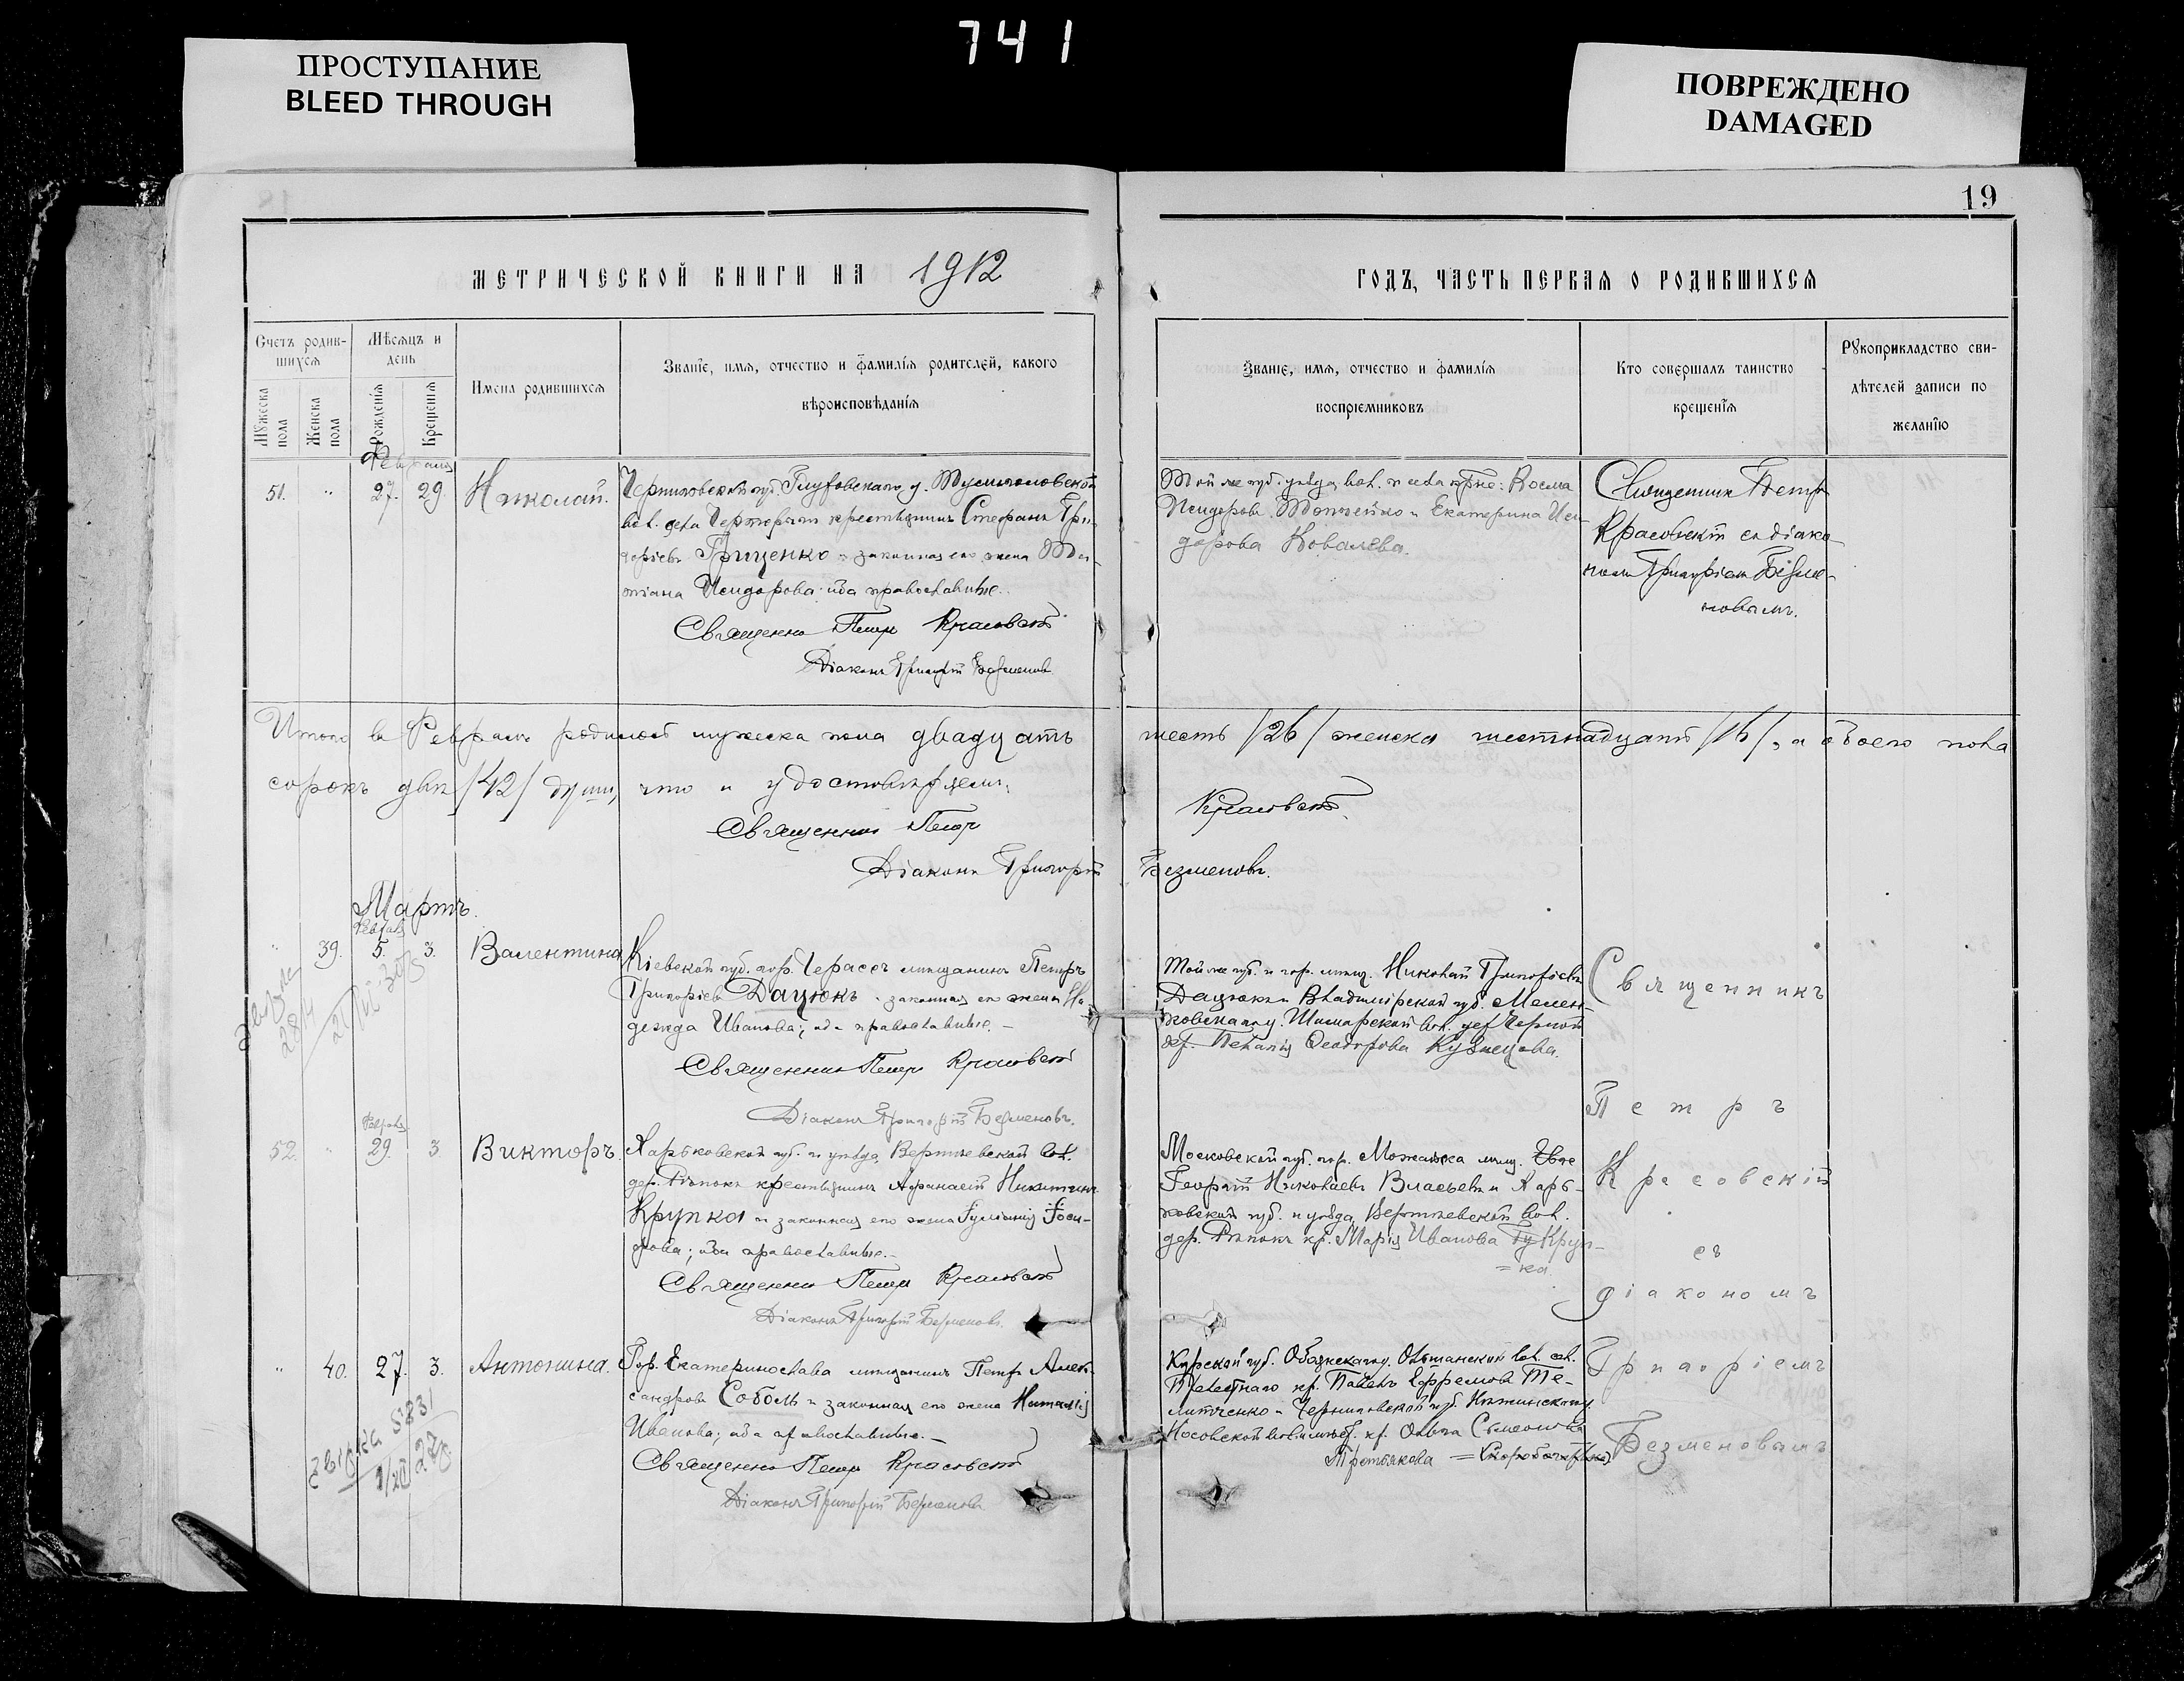 741
ПРОСТУПАНИЕ
BLEED THROUGH
ПОВРЕЖДЕНО
DAMAGED
19
МЕТРИЧЕСКОЙ КНИГИ НА 1912
ГОДЪ, ЧАСТЬ ПЕРВАЯ О РОДИВШИХСЯ
Счетъ родив-
шихся
Мѣсяцъ и
день
Мужеска
пола
Женска
пола
Рожденія
Крещенія
Имена родившихся
Званіе, имя, отчество и фамилія родителей, какого
вѣроисповѣданія
Званіе, имя, отчество и фамилія
воспріемниковъ
Кто совершалъ таинство
крещенія
Рукоприкладство сви-
дѣтелей записи по
желанію
Февраля
51. " 27. 29. Николай.
Черниговской губ. Глуховскаго у.
вол. села крестьянинъ Стефанъ Гри-
горіевъ Гриценко и законная его жена Та-
тіана Исидорова; оба православные.
Священник Петр Красовскій
Діаконъ Григорій Безменовъ
Той же губ. уѣзда, вол. и села крне: Косма
Исидоровъ и Екатерина Иси-
дорова Ковалева.
Священник Петр
Красовскій съ діако-
номъ Григоріем Безме-
новымъ.
Итого въ Февралѣ родилось мужеска пола двадцать
шесть /26/ женска шестнадцать /16/, а обоего пола
сорокъ двѣ /42/ души, что и удостовѣряемъ:
Священник Петр
Красовскій.
Діаконъ Григорій
Безменовъ.
Мартъ.
Февраля
" 39. 5. 3. Валентина
Кіевской губ. гор. Черкасъ мѣщанинъ Петръ
Григоріевъ Дацюкъ и законная его жена На-
дежда Иванова; оба православные. –
Священник Петр Красовскій
Діаконъ Григорій Безменовъ.
Той же губ. и гор. мѣщ. Николай Григоріевъ
Дацюкъ и Владимірской губ. Мелен-
ковскаго у. вол. дер. Черной
Пелагія Ѳеодорова Кузнецова.
Священникъ
Петръ
Красовскій
съ
діакономъ
Григоріемъ
Безменовымъ
Февраля
52. " 29. 3. Викторъ.
Харьковской губ. и уѣзда, вол.
дер. Рѣпокъ крестьянинъ Афанасій Никитинъ
Крупка и законная его жена Іуліанія Іоси-
фова; оба православные. –
Священник Петр Красовскій
Діаконъ Григорій Безменовъ.
Московской губ. гор. Можайска мѣщ.
Георгій Николаевъ Власьевъ и Харь-
ковской губ. и уѣзда, вол.
дер. Рѣпокъ кр. Марія Иванова Круп-
= ка.
" 40. 27. 3. Антонина.
Гор. Екатеринослава мѣщанинъ Петръ Алек-
сандровъ Соболь и законная его жена Наталія
Иванова; оба православные. –
Священник Петр Красовскій
Діаконъ Григорій Безменовъ
Курской губ. Обоянскаго у. вол. сл.
кр. Павелъ Ефремовъ Те-
литченко и Черниговской губ. Нѣжинскаго у.
Носовской кр. Ольга Симеонова
Третьякова